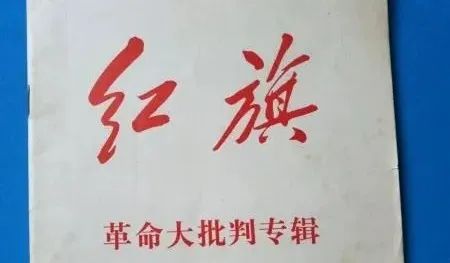 红旗
革命大批判专辑